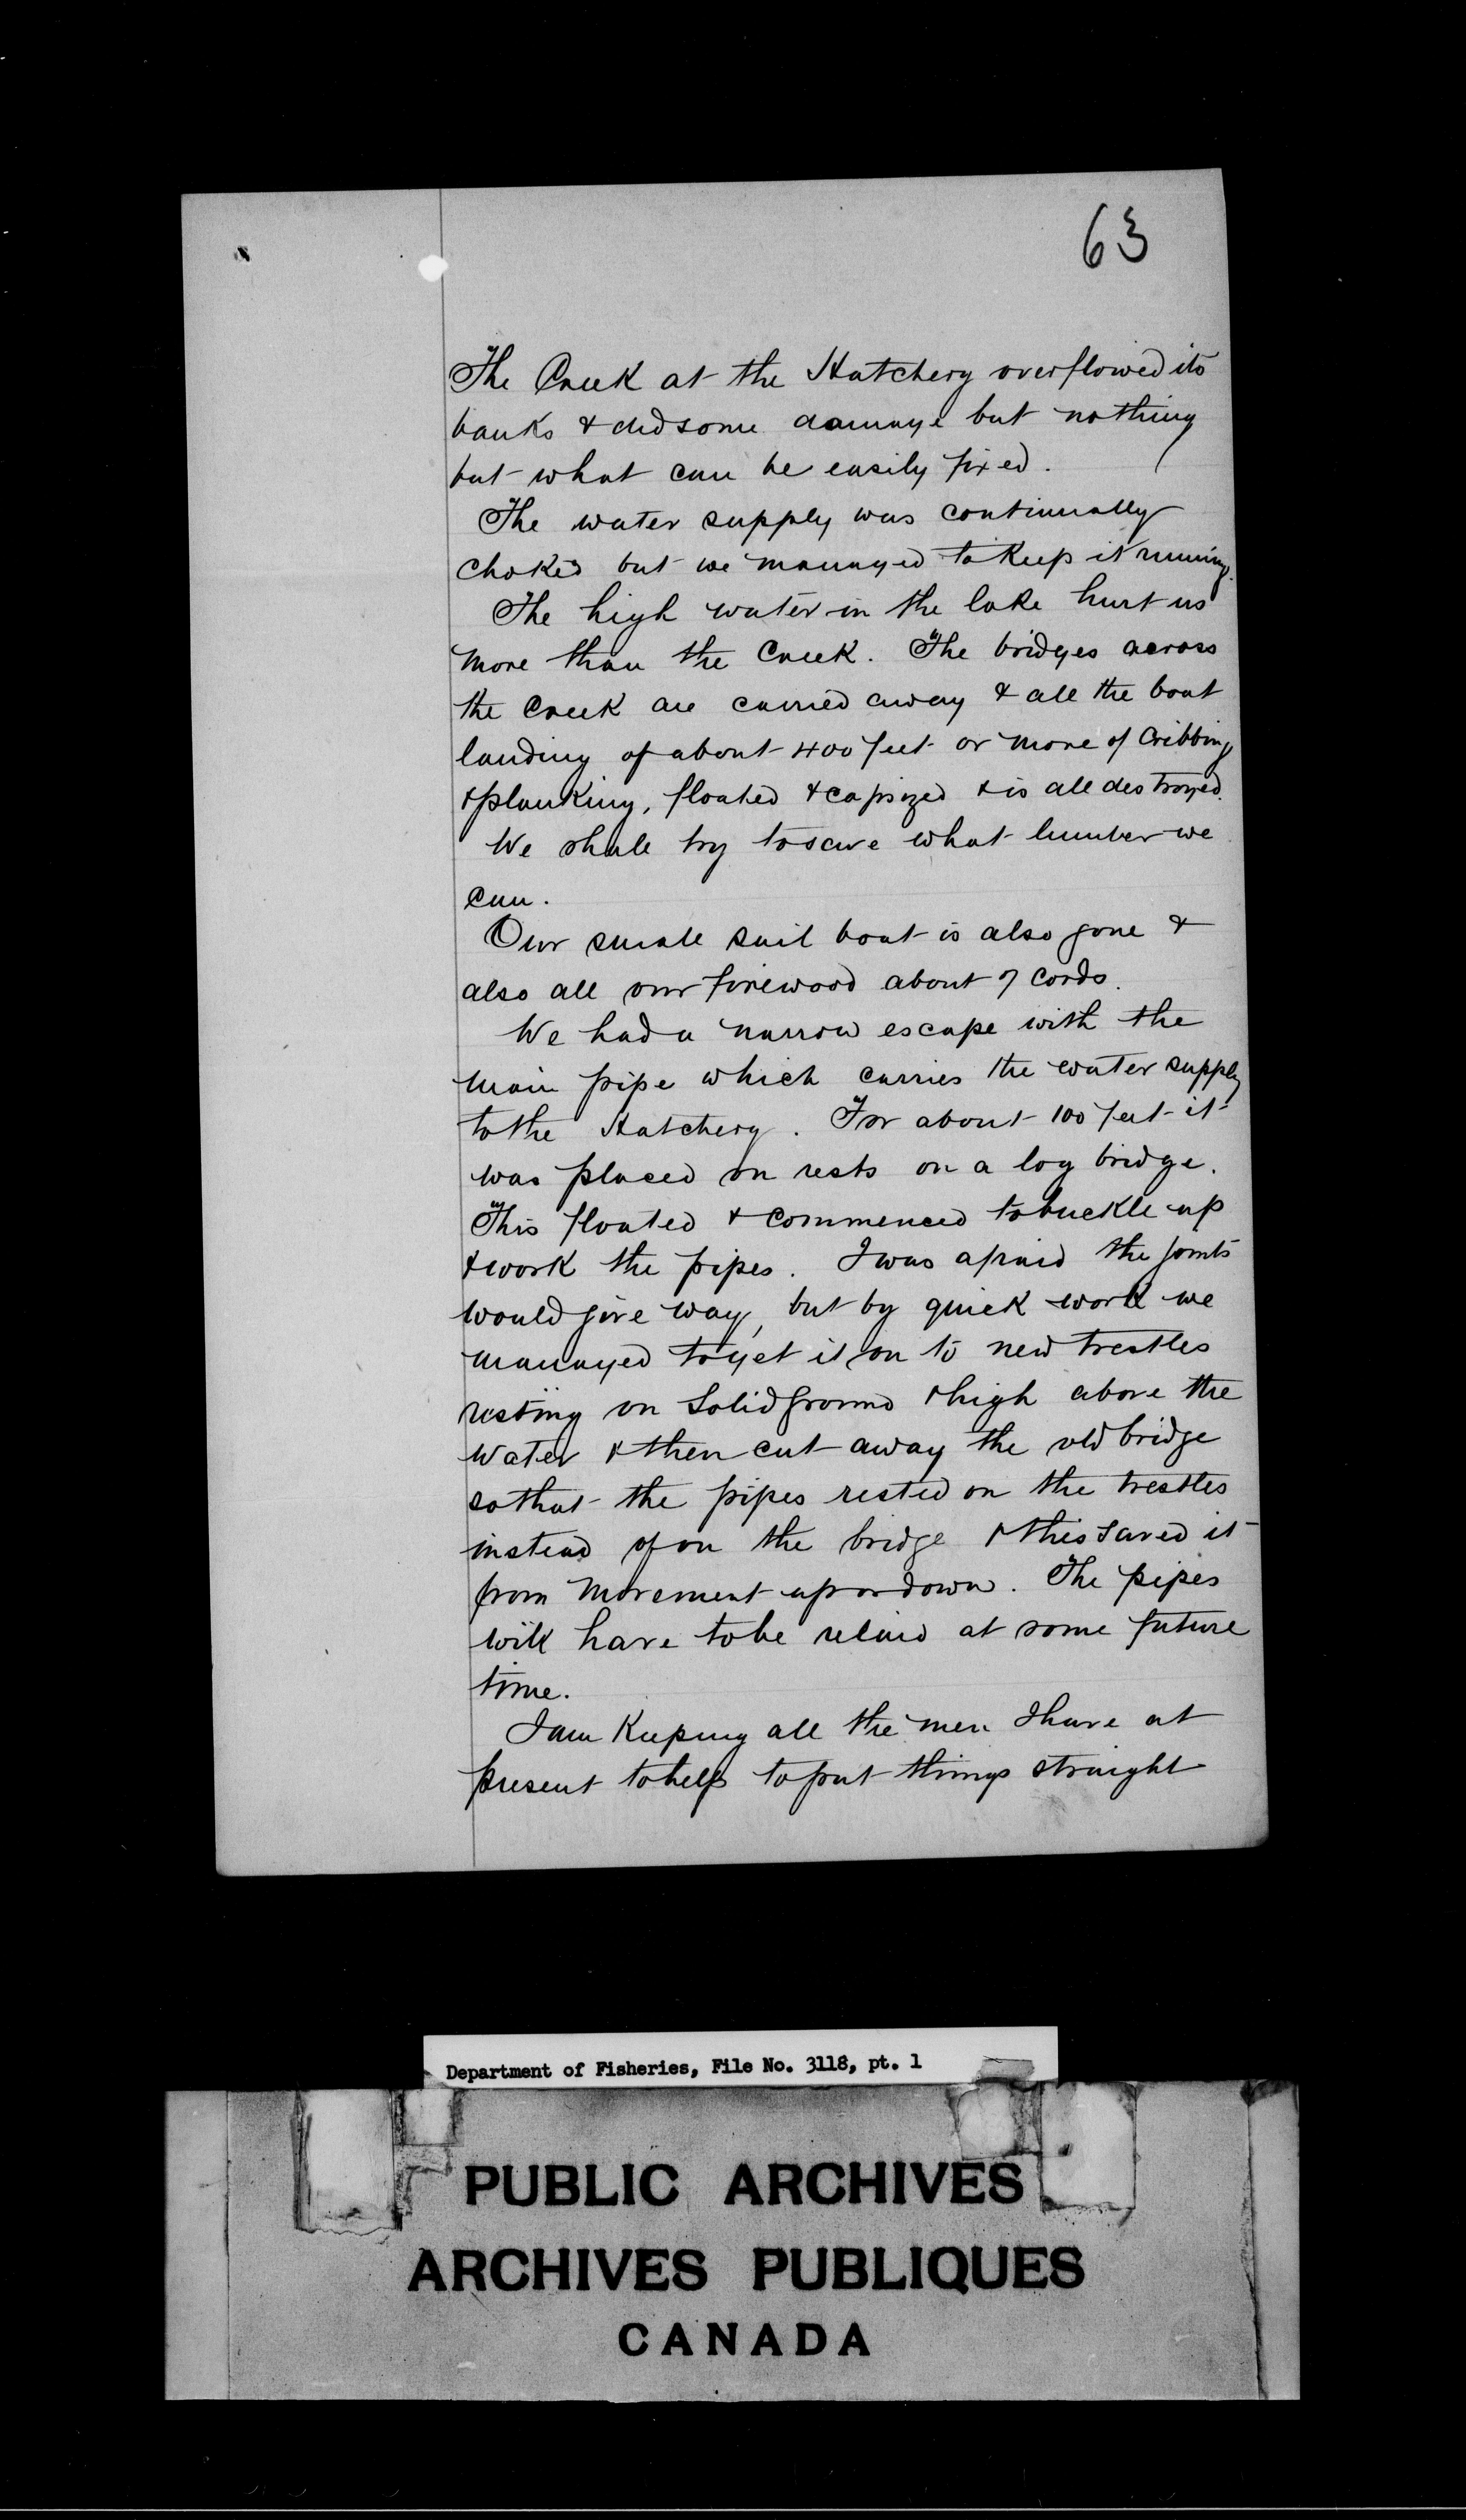 63
The Creek at the Hatchery overflowed its
banks & did some damage but nothing
but what can be easily fixed.
The water supply was continually
choked but we managed to keep it running.
The high water in the lake hurt us
more than the Creek. The bridges across
the Creek are carried away & all the boat
landing of about 400 feet or more of Cribbing
& planking, floated & capsized & is all destroyed.
We shall try to save what lumber we
can.
Our small sail boat is also gone &
also all our firewood about 7 Cords.
We had a narrow escape with the
main pipe which carries the water supply
to the Hatchery. For about 100 feet it
was placed on rests on a log bridge.
This floated & commenced to buckle up
& work the pipes. I was afraid the joints
would give way, but by quick work we
managed to get it on to new trestles
resting on Solid ground & high above the
water & then cut away the old bridge
so that the pipes rested on the trestles
instead of on the bridge & this saved it
from movement up or down. The pipes
will have to be relaid at some future
time.
I am Keeping all the men I have at
present to help to put things straight
Department of Fisheries, File No. 3118, pt. 1
PUBLIC ARCHIVES
ARCHIVES PUBLIQUES
CANADA